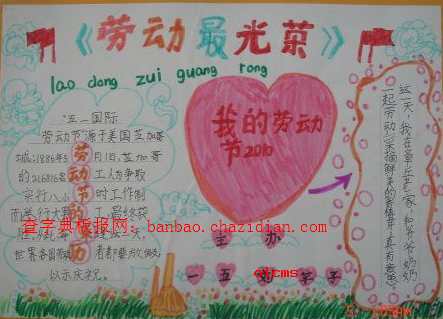 《劳动最光荣》
lao dong zui guang rong
"五一国际
劳动节"源于美国芝加哥
城.1886年5月1日,芝加哥
的216816名工人为争取
实行八小时工作制
而举行大罢工,最终获
世界各国劳动者都要放假
以示庆祝.
劳动节的来历
我的劳动
节2010
主办
一五 班
这一天,我在章丘老家,和爷爷奶奶
一起劳动,采摘鲜美的香椿芽,真有意思
查字典板报网：banbao.chazidian.com